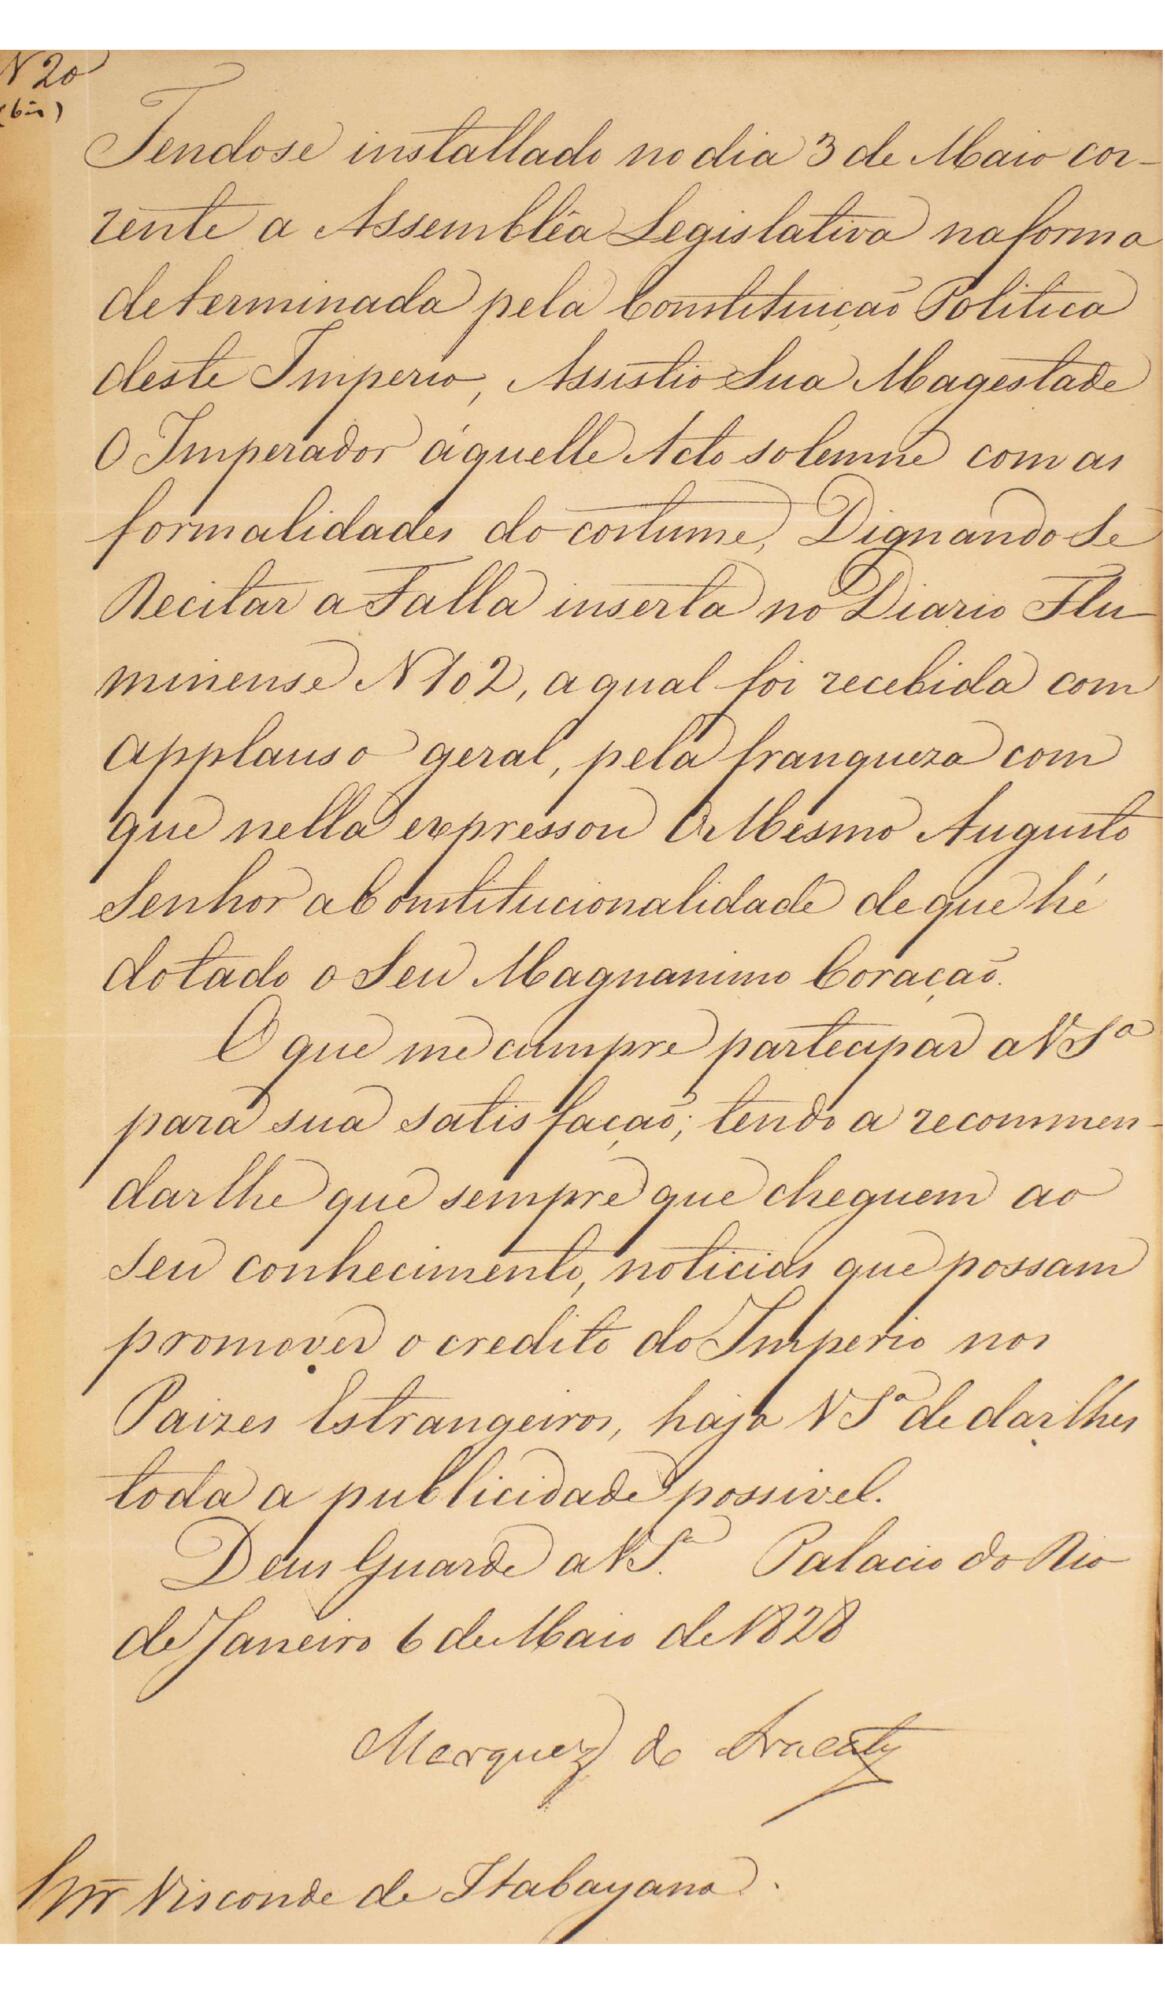 N 20
(bis)
Tendose installado no dia 3 de Maio cor-
rente a Assembléa Legislativa na forma
determinada pela Constituiçaõ Politica
deste Imperio, Assistio Sua Magestade
O Imperador áquelle Acto solemne com as
formalidades do costume, Dignando Se
Recitar a Falla inserta no Diario Flu-
minense N 102, a qual foi recebida com
applauso geral, pela franqueza com
que nella expressou O Mesmo Augusto
Senhor a Constitucionalidade de que hé
dotado o Seu Magnanimo Coraçaõ.
O que me cumpre partecipar a V Sª
para sua satisfaçaõ; tendo a recommen-
darlhe que sempre que cheguem ao
seu conhecimento, noticias que possam
promover o credito do Imperio nos
Paizes Estrangeiros, haja V Sª de darlhes
toda a publicidade possivel.
Deus Guarde a V Sª. Palacio do Rio
de Janeiro 6 de Maio de 1828
Marquez de Aracaty
Snr Visconde de Itabayana.